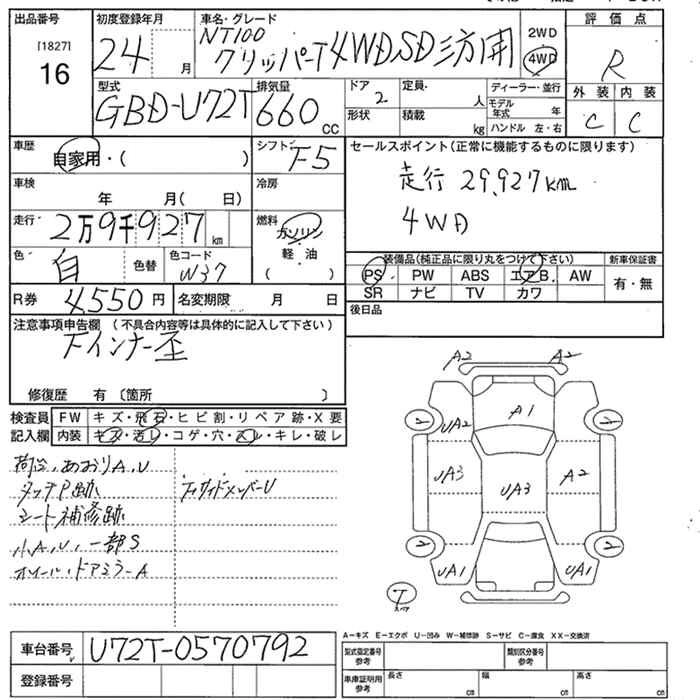 出品番号 初度登録年月 車名・グレード 2WD 評価点
[1827] 24 月 NT100 4WD R
16 クリッパーT 4WD SD 三方開
型式 排気量 ドア 定員 人 ディーラー・並行 外装 内装
GBD-U72T 660 cc 2 モデル年式 年 C C
形状 積載 kg ハンドル 左・右
車歴 自家用・( ) シフト F5 セールスポイント(正常に機能するものに限ります)
車検 年 月( 日) 冷房 走行 29,927km
走行 2万9千927km 燃料 ガソリン 4WD
色 白 色替 色コード W37 軽油 ( )
装備品(純正品に限り丸をつけて下さい) 新車保証書
PS PW ABS エアB. AW 有・無
SR ナビ TV カワ
R券 4,550円 名変期限 月 日 後日品
注意事項申告欄 (不具合内容等は具体的に記入して下さい)
Fインナー歪
修復歴 有 〔箇所 〕
検査員 FW キズ・飛石・ヒビ割・リペア跡・X要
記入欄 内装 キズ・汚レ・コゲ・穴・スレ・キレ・破レ
荷台、あおりA、U
タッチP跡 FサイドメンバーU
シート補修跡
小A、U、一部S
ホイール・ドアミラーA
A2 A2
A1
UA2
UA3 UA3 A2
2 2
2 2
UA1 UA1
T
スペア
A-キズ E-エクボ U-凹み W-補修跡 S-サビ C-腐食 XX-交換済
車台番号 U72T-0570792 型式指定番号 参考 類別区分番号 参考
登録番号 車庫証明用 参考 長さ cm 幅 cm 高さ cm